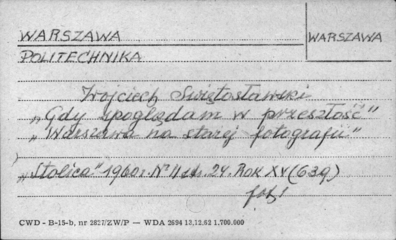 WARSZAWA
WARSZAWA
POLITECHNIKA
Wojciech Świętosławski
„Gdy spoglądam w przeszłość"
„Warszawa na starej fotografii"
„Stolica" 1960 r. Nr 11 str. 24. Rok XV (639)
fot!
CWD - B-15-b, nr 2827/ZW/P — WDA 2694 13,12.62 1,700.000